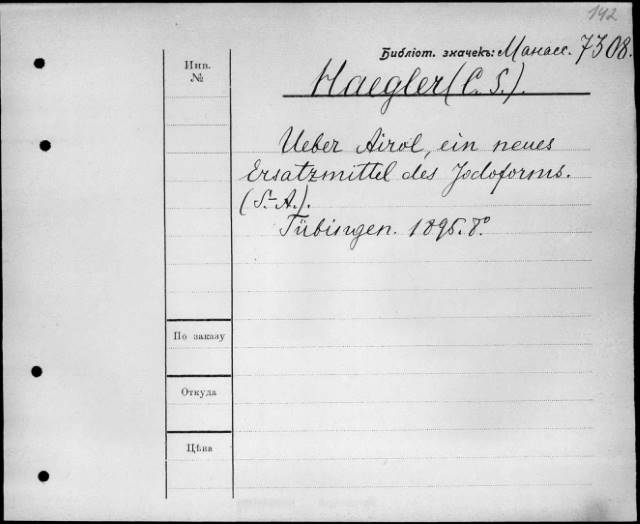 142
Библіот. значекъ: Манасс. 7308.
Инв.
№
Haegler (C. S.).
Ueber Airol, ein neues
Ersatzmittel des Jodoforms.
(S.-A.).
Tübingen. 1895. 8º
По заказу
Откуда
Цѣна